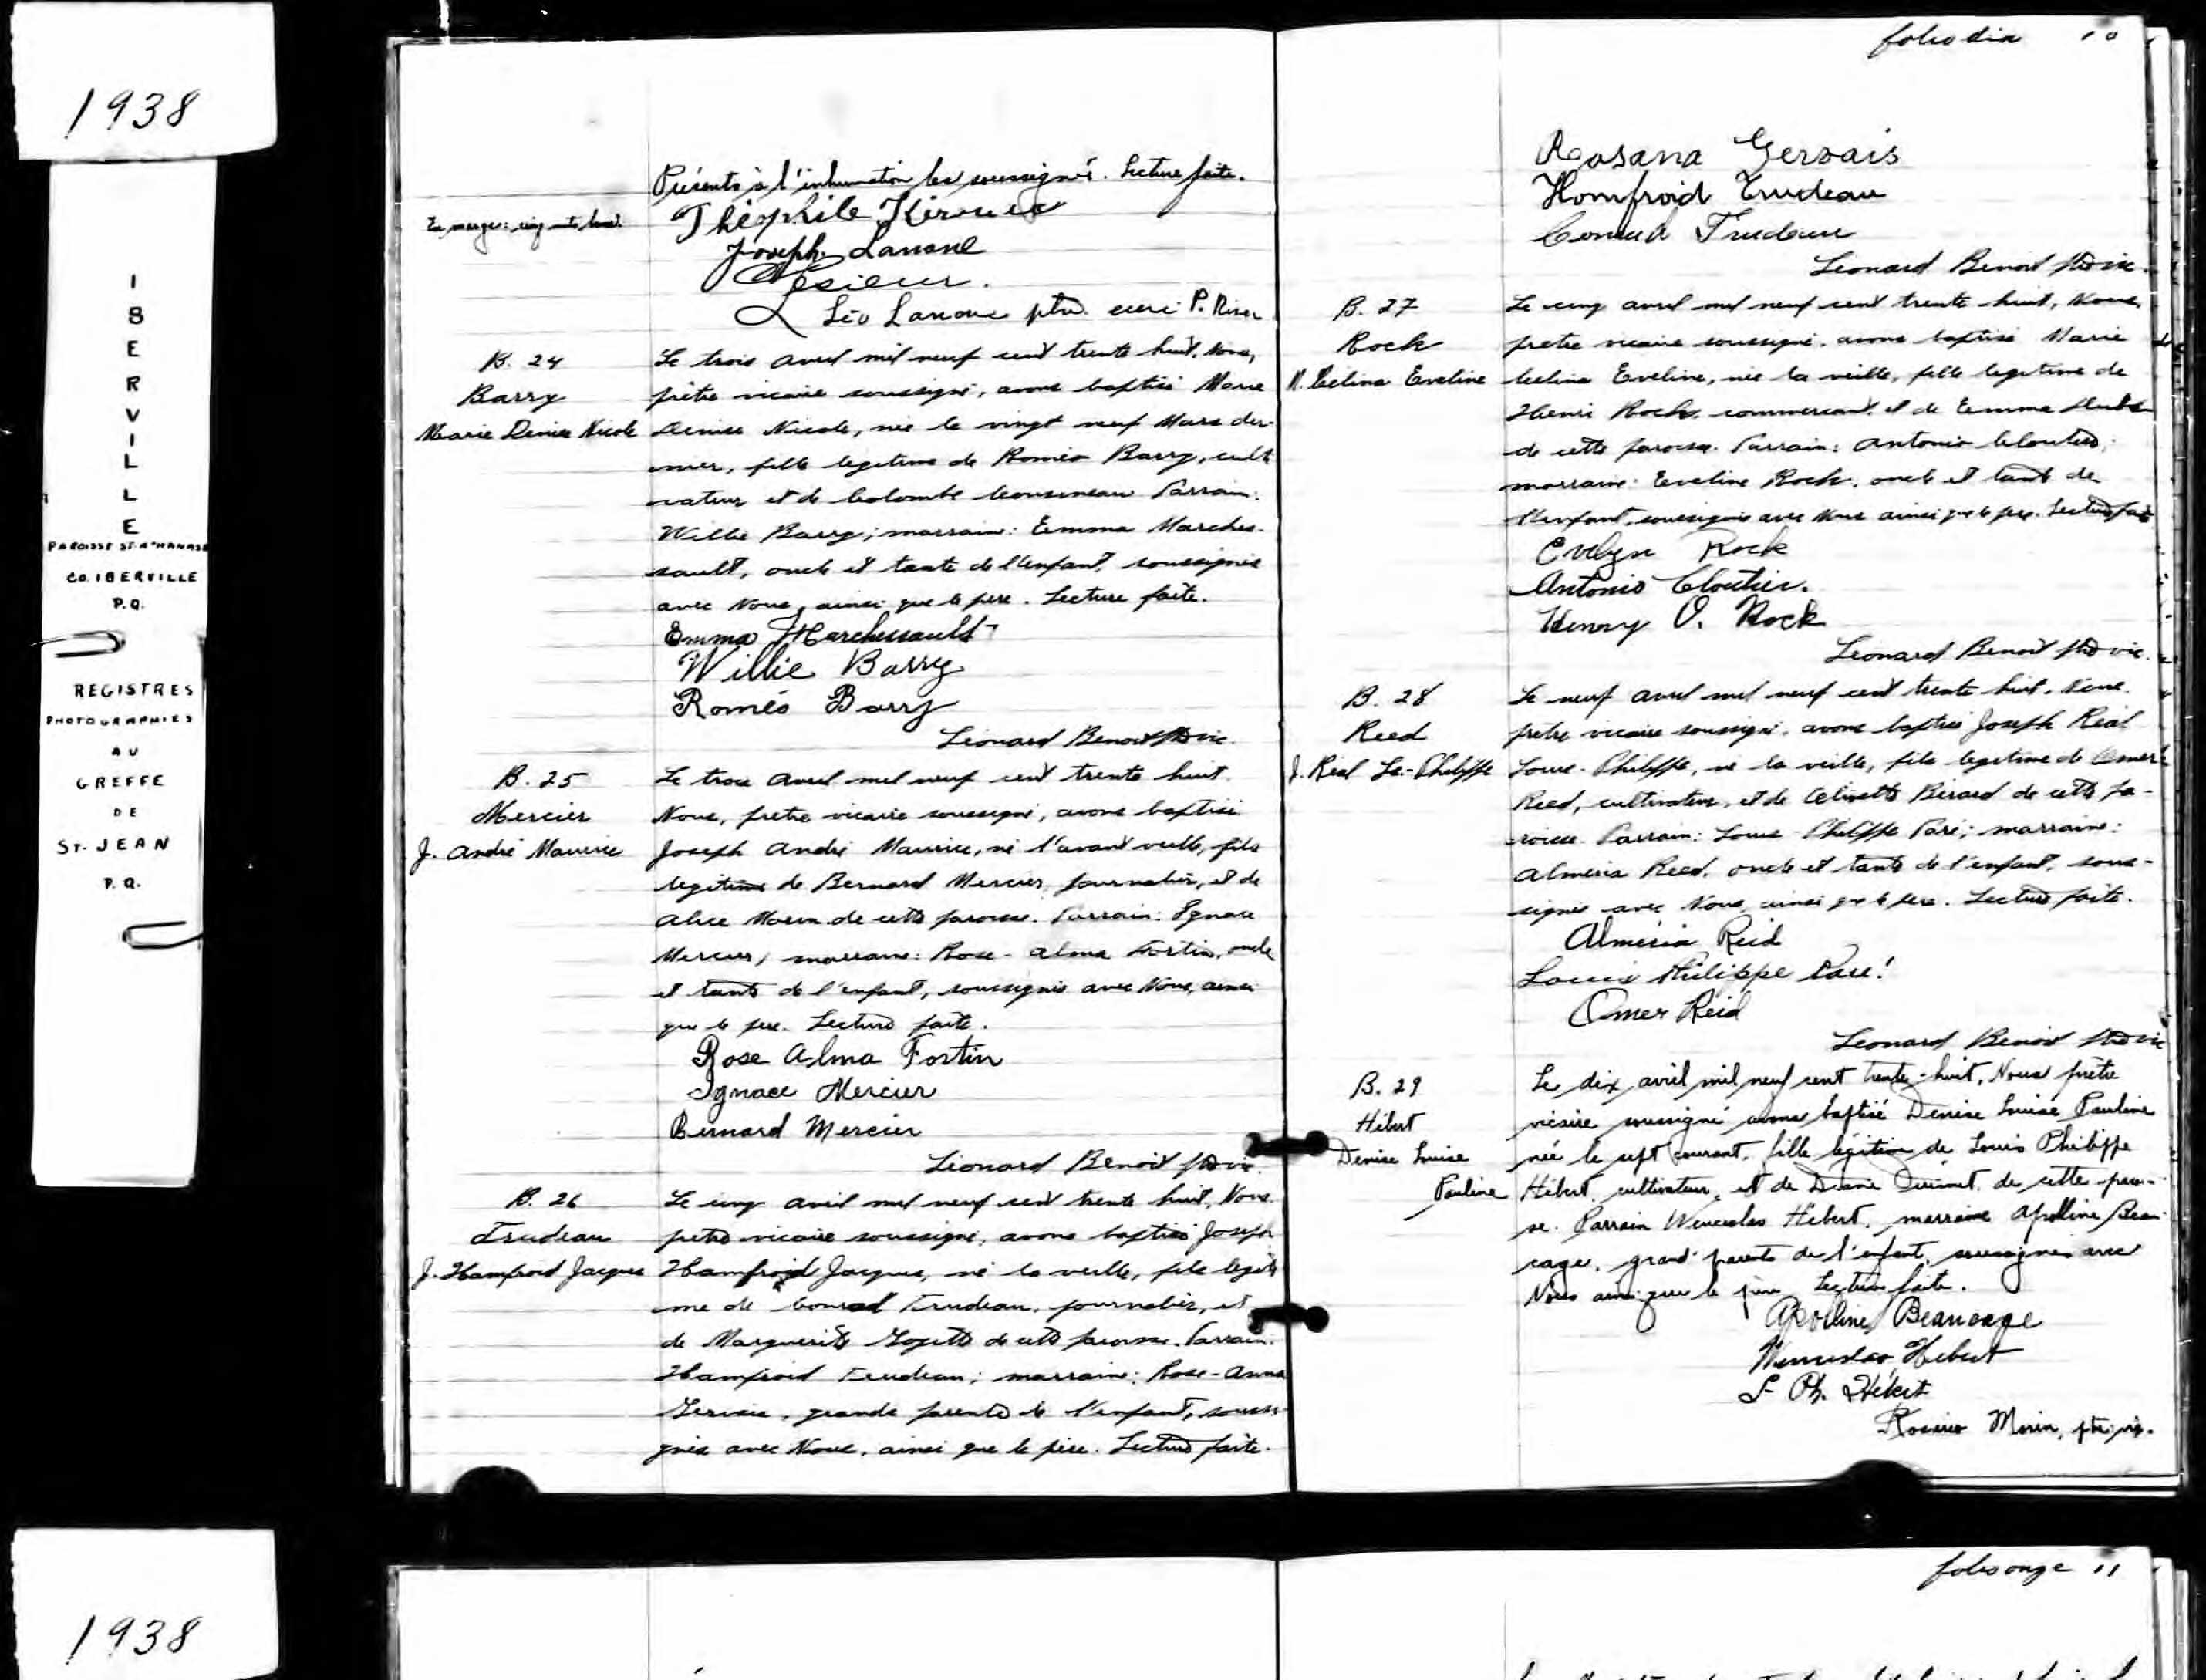 1938
I
B
E
R
V
I
L
L
E
PAROISSE ST-ATHANASE
CO. IBERVILLE
P.Q.
REGISTRES
PHOTOGRAPHIES
AU
GREFFE
DE
ST-JEAN
P.Q.
Présents à l'inhumation les soussignés. Lecture faite.
En marge:
Théophile
Joseph Lanoue
Lésieur.
Léo Lanoue ptre curé P. River
B. 24
Barry
Marie Denise Nicole
Le trois avril mil neuf cent trente huit, Nous,
prêtre vicaire soussigné, avons baptisé Marie
Denise Nicole, née le vingt neuf Mars der-
nier, fille legitime de Roméo Barry, culti
vateur et de Colombe Cousineau Parrain:
Willie Barry; marraine: Emma Marches-
sault, oncle et tante de l'enfant, soussignés
avec Nous, ainsi que le père. Lecture faite.
Emma Marchessault
Willie Barry
Roméo Barry
Léonard Benoit ptre vic.
B. 25
Mercier
J. André Maurice
Le trois avril mil neuf cent trente huit.
Nous, prêtre vicaire soussigné, avons baptisé
Joseph André Maurice, né l'avant veille, fils
legitime de Bernard Mercier, journalier, et de
Alice Morin de cette paroisse. Parrain: Ignace
Mercier; marraine: Rose-Alma Fortin, oncle
et tante de l'enfant, soussignés avec Nous, ainsi
que le père. Lecture faite.
Rose Alma Fortin
Ignace Mercier
Bernard Mercier
Léonard Benoit ptre vic.
B. 26
Trudeau
J. Hamfroid Jacques
Le cinq avril mil neuf cent trente huit, Nous.
prêtre vicaire soussigné, avons baptisé Joseph
Hamfroid Jacques, né la veille, fils légiti
me de Conrad Trudeau, journalier, et
de Marguerite Goyette de cette paroisse. Parrain:
Hamfroid Trudeau; marraine: Rose-Anna
Gervais, grands parents de l'enfant, soussi-
gnés avec Nous, ainsi que le père. Lecture faite.
folio dix 10
Rosana Gervais
Homfroid Trudeau
Conrad Trudeau
Léonard Benoit ptre vic.
B. 27
Rock
M. Celina Eveline
Le cinq avril mil neuf cent trente huit, Nous,
prêtre vicaire soussigné, avons baptisé Marie
Celina Eveline, née la veille, fille legitime de
Henri Rock, commerçant, et de Emma
de cette paroisse. Parrain: Antonio Cloutier;
marraine: Eveline Rock, oncle et tante de
l'enfant, soussignés avec Nous ainsi que le père. Lecture faite
Evelyn Rock
Antonio Cloutier.
Henry O. Rock
Léonard Benoit ptre vic.
B. 28
Reed
J. Réal Ls.-Philippe
Le neuf avril mil neuf cent trente huit, Nous.
prêtre vicaire soussigné, avons baptisé Joseph Réal
Louis-Philippe, né la veille, fils legitime de Omer
Reed, cultivateur, et de Olivette Bérard de cette pa-
roisse. Parrain: Louis-Philippe Paré; marraine:
Alméria Reed, oncle et tante de l'enfant, sous-
signés avec Nous, ainsi que le père. Lecture faite.
Alméria Reid
Louis Philippe Paré!
Omer Reid
Léonard Benoit ptre vic
B. 29
Hébert
Denise Louise
Pauline
Le dix avril mil neuf cent trente-huit, Nous prêtre
vicaire soussigné avons baptisé Denise Louise Pauline
née le sept courant, fille légitime de Louis Philippe
Hébert, cultivateur, et de Diana Ouimet de cette parois-
se. Parrain Wenceslas Hébert, marraine Apolline Beau-
cage, grand'parents de l'enfant, soussignés avec
Nous ainsi que le père. Lecture faite.
Apolline Beaucage
Wenceslas Hébert
L- Ph. Hébert
Rosario Morin, ptre vic.
1938
folio onze 11